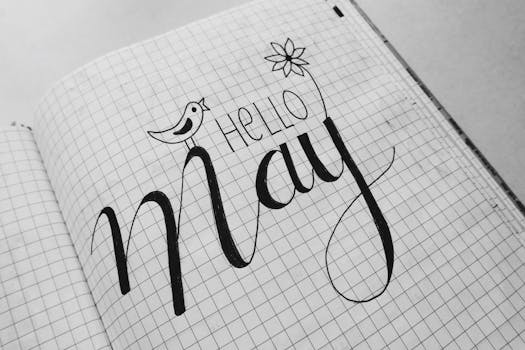 HELLO
May